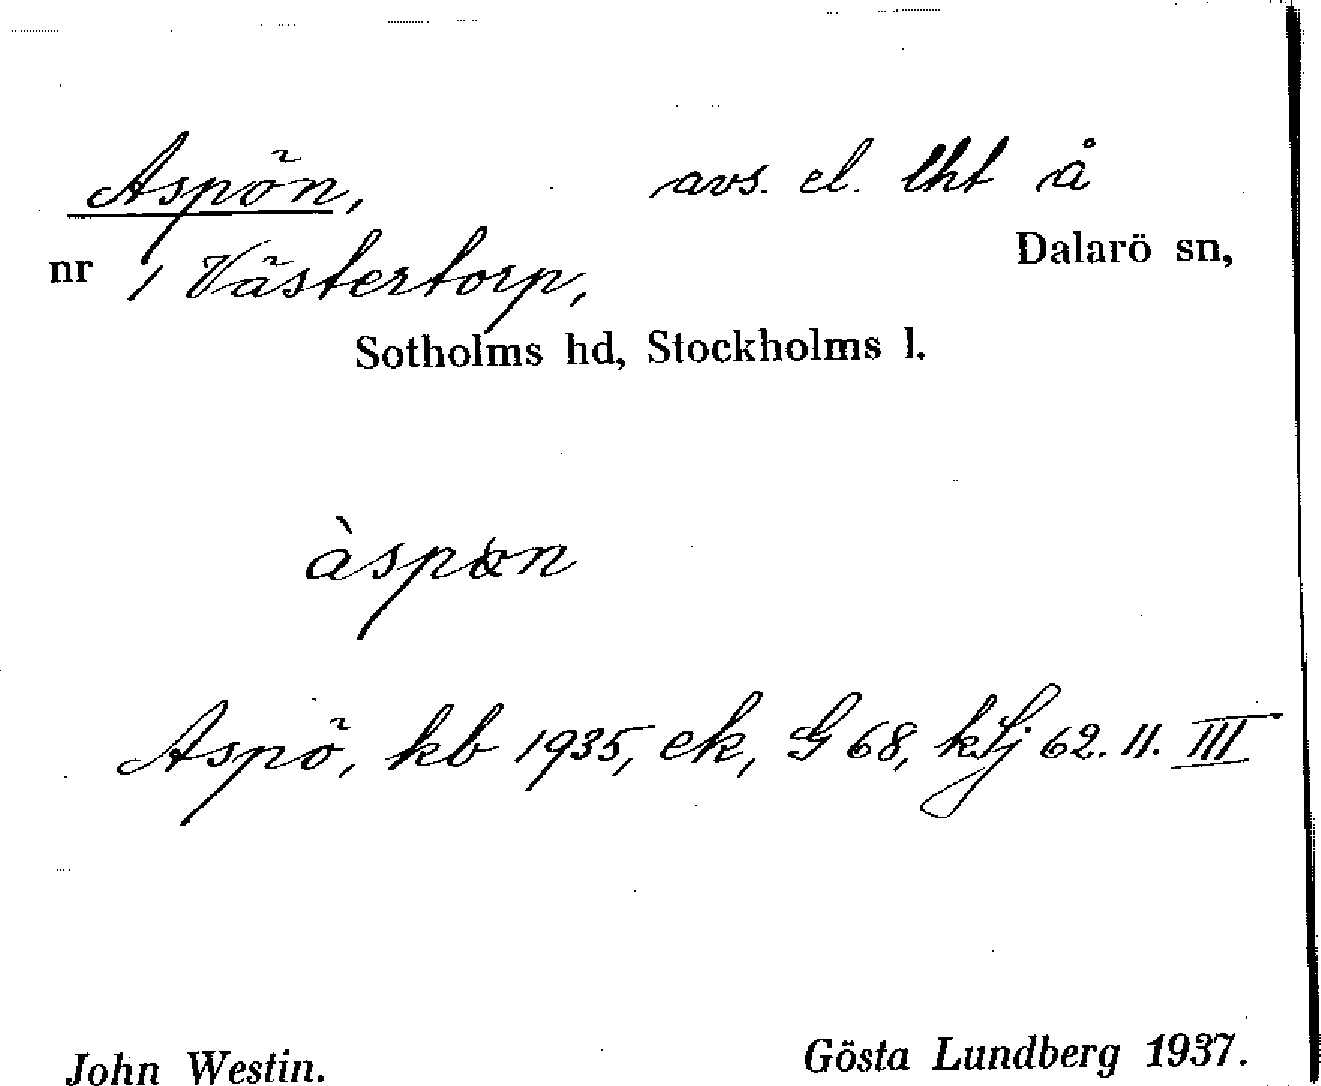 Aspön, avs. el. lht å
nr 1 Västertorp, Dalarö sn,
Sotholms hd, Stockholms l.
àspɷn
Aspö, kb 1935, ek, G 68, kSj 62. 11. III
John Westin. Gösta Lundberg 1937.